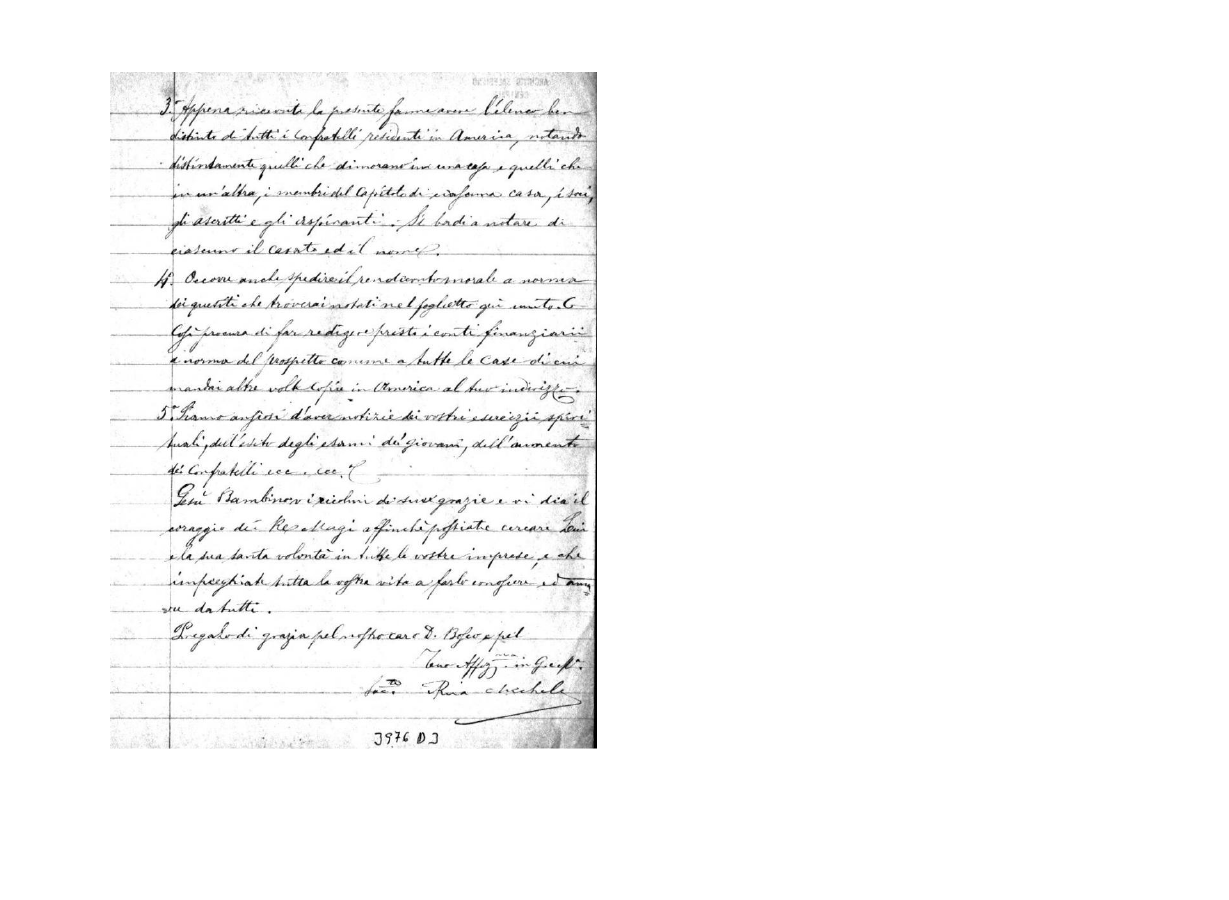 3.° Appena ricevuta la presente farmi avere l'elenco ben
distinto di tutti i Confratelli residenti in America, notando
distintamente quelli che dimorano in una casa e quelli che
in un'altra, i membri del Capitolo di ciascuna casa, i soci,
gli ascritti e gli aspiranti. Si badi a notare di
ciascuno il casato ed il nome.
4.° Occorre anche spedire il rendiconto morale a norma
dei quesiti che troverai notati nel foglietto qui unito. Co
Così procura di far redigere presto i conti finanziarii
a norma del prospetto comune a tutte le case di cui
mandai altre volte copie in America al tuo indirizzo.
5.° Siamo ansiosi d'aver notizie dei vostri esercizii spiri
tuali, dell'esito degli esami dei giovani, dell'aumento
dei Confratelli ecc. ecc.
Gesù Bambino vi ricolmi di sue grazie e vi dia il
coraggio dei Re Magi affinchè possiate cercare Lui
e la sua santa volontà in tutte le vostre imprese, e che
impieghiate tutta la vostra vita a farlo conoscere ed ama
re da tutti.
Pregalo di grazia pel nostro caro D. Bosco e pel
Tuo Affez.mo in G. e M.
Sac. Rua Michele
3976 D 3